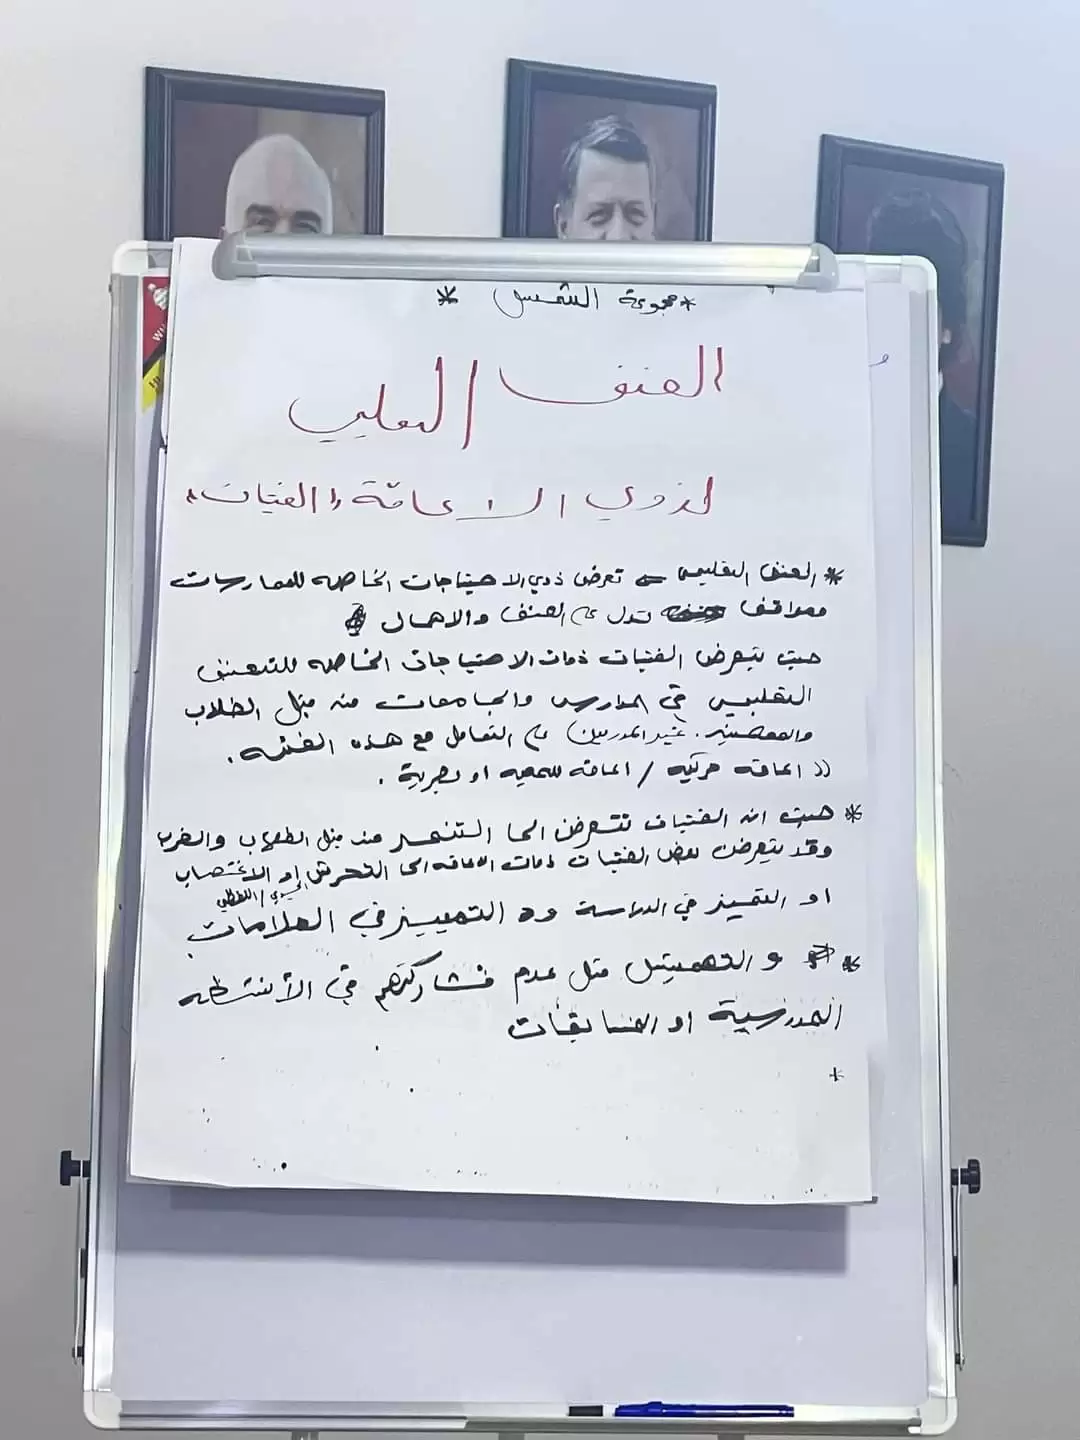 *مجموعة الشمس *
العنف التعليمي
لذوي الاعاقة "الفتيات"
* العنف التعليمي = تعرض ذوي الاحتياجات الخاصه للممارسات
ومواقف تدل على العنف والاهمال
حيث يتعرض الفتيات ذوات الاحتياجات الخاصه للتعنيف
التعليمي في المدارس والجامعات من قبل الطلاب
والمعلمين. غير المدربين على التعامل مع هذه الفئه .
(( اعاقه حركيه / اعاقه سمعيه او بصرية .
* حيث ان الفتيات تتعرض الى التنمر من قبل الطلاب والضرب
وقد يتعرض بعض الفتيات ذوات الاعاقه الى التحرش او الاغتصاب
الجسدي / اللفظي
او التميز في الدراسة و التمييز في العلامات
* و التهميش مثل عدم مشاركتهم في الأنشطه
المدرسية او المسابقات
*